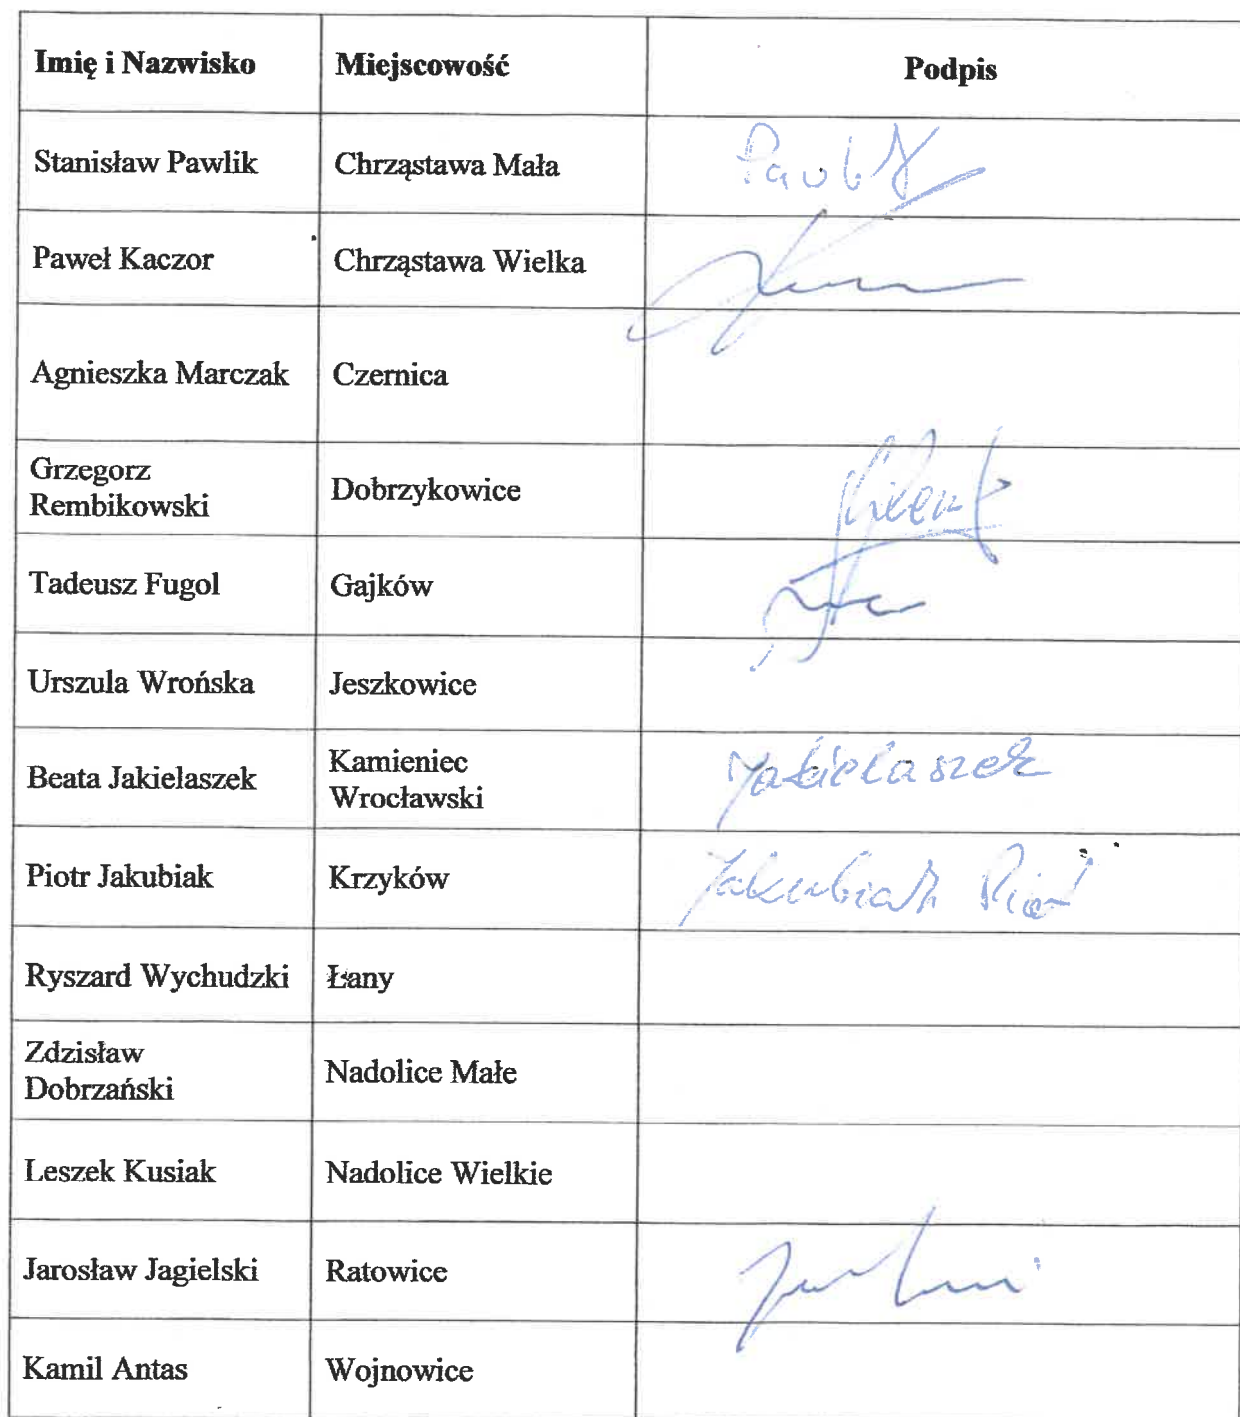 Imię i Nazwisko Miejscowość Podpis
Stanisław Pawlik Chrząstawa Mała
Paweł Kaczor Chrząstawa Wielka
Agnieszka Marczak Czernica
Grzegorz
Rembikowski Dobrzykowice
Tadeusz Fugol Gajków
Urszula Wrońska Jeszkowice
Beata Jakielaszek Kamieniec
Wrocławski Jakielaszek
Piotr Jakubiak Krzyków Jakubiak Piotr
Ryszard Wychudzki Łany
Zdzisław
Dobrzański Nadolice Małe
Leszek Kusiak Nadolice Wielkie
Jarosław Jagielski Ratowice
Kamil Antas Wojnowice